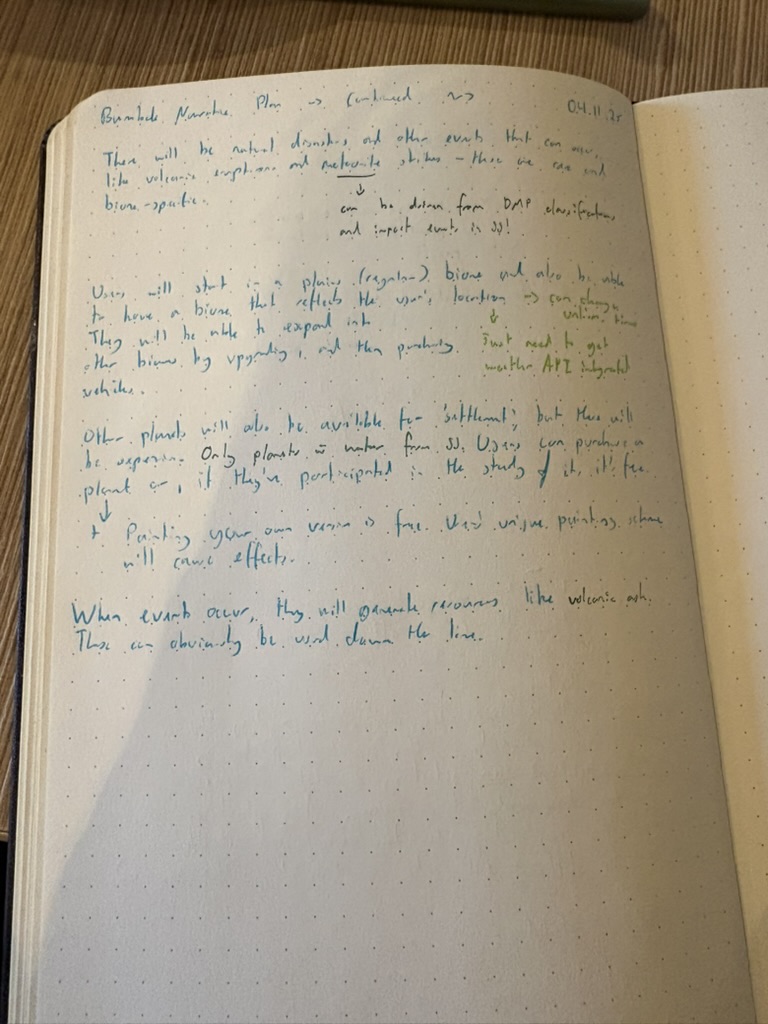 Narrative Plan → Continued ~> 04.11.25
There will be natural disasters and other events that can occur,
like volcanic eruptions and meteorite strikes - these are rare and
biome-specific.
↓
can be drawn from DMP classifications
and impact events in SS!
Users will start in a plains (regular) biome and also be able
to have a biome that reflects the user's location → can change
within time
They will be able to expand into
↓
other biomes by upgrading, and then purchasing
vehicles.
Just need to get
weather API integrated
Other planets will also be available for 'settlement', but this will
be expensive. Only planets w water from SS. Users can purchase a
planet or, if they've participated in the study of it, it's free.
↓
+ Painting your own version is free. User's unique painting scheme
will cause effects.
When events occur, they will generate resources like volcanic ash.
These can obviously be used down the line.